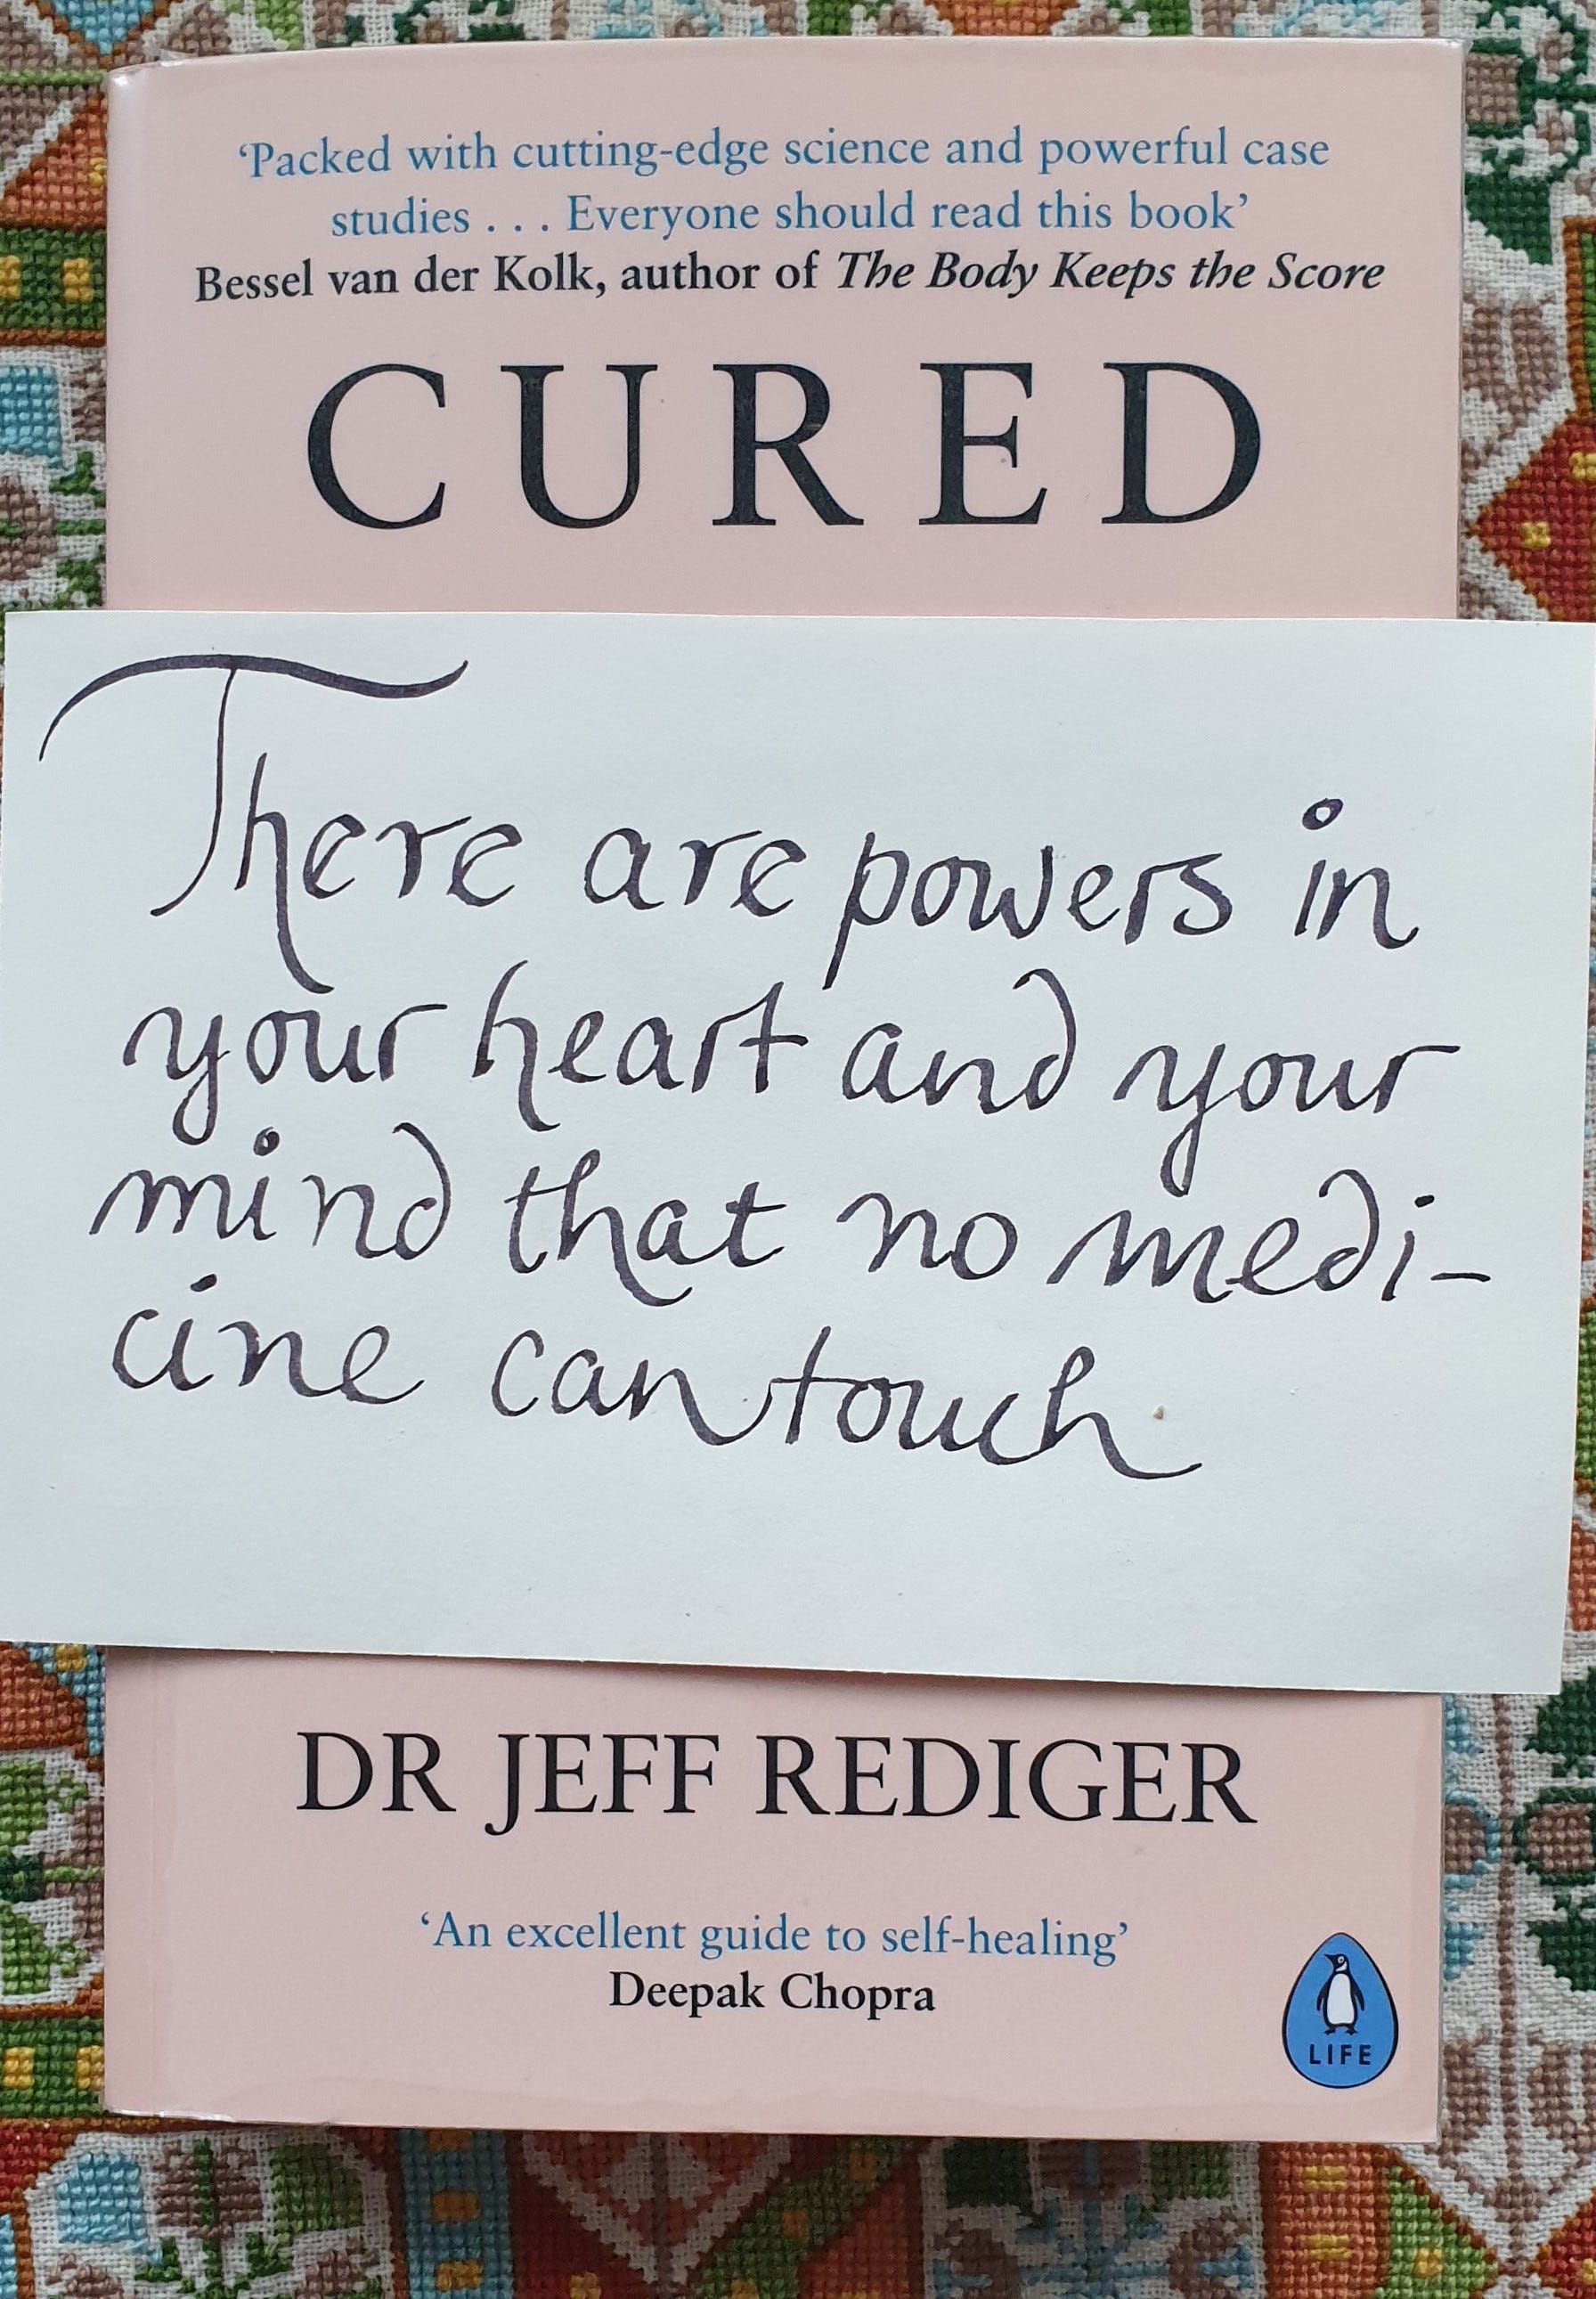 ‘Packed with cutting-edge science and powerful case
studies . . . Everyone should read this book’
Bessel van der Kolk, author of The Body Keeps the Score
CURED
There are powers in
your heart and your
mind that no medi-
cine can touch
DR JEFF REDIGER
‘An excellent guide to self-healing’
Deepak Chopra
LIFE